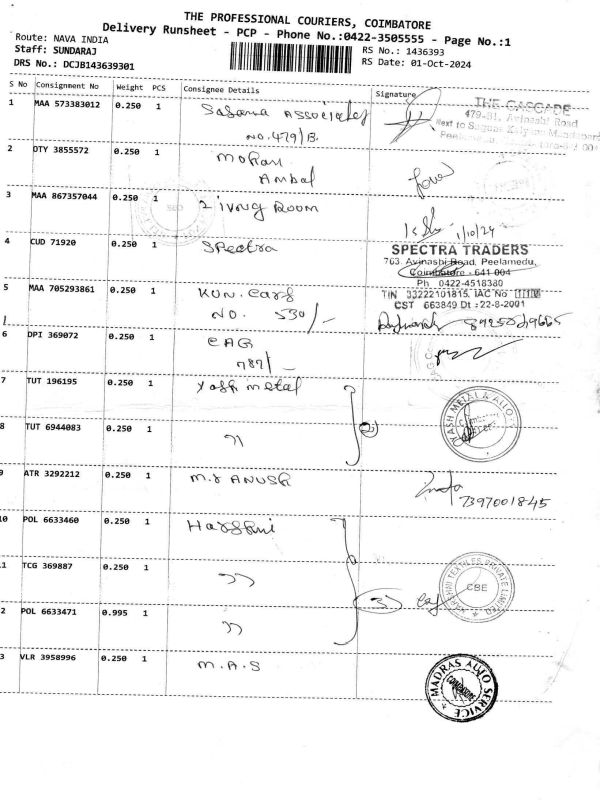 THE PROFESSIONAL COURIERS, COIMBATORE
Delivery Runsheet - PCP - Phone No.:0422-3505555 - Page No.:1
Route: NAVA INDIA
Staff: SUNDARAJ
RS No.: 1436393
DRS No.: DCJB143639301
RS Date: 01-Oct-2024
S No Consignment No Weight PCS Consignee Details Signature
1 MAA 573383012 0.250 1
NO. 479/B.
THE CASCADE
479-81, Avinashi Road
2 DTY 3855572 0.250 1
3 MAA 867357044 0.250 1 Living Room
1/10/24
4 CUD 71920 0.250 1 Spectra
SPECTRA TRADERS
763, Avinashi Road, Peelamedu,
Coimbatore - 641 004
Ph 0422-4518380
5 MAA 705293861 0.250 1
TIN 33222101815, IAC No
NO. 530/-
CST 663849 Dt : 22-8-2001
6 DPI 369072 0.250 1
787/-
7 TUT 196195 0.250 1 Yash metal
YASH METAL & ALLOY
8 TUT 6944083 0.250 1 "
2
9 ATR 3292212 0.250 1
7397001845
10 POL 6633460 0.250 1 Harshni
11 TCG 369887 0.250 1 "
3
HARSHNI TEXTILES PRIVATE LIMITED
CBE
12 POL 6633471 0.995 1 "
13 VLR 3958996 0.250 1 M.A.S
MADRAS AUTO SERVICE
COIMBATORE